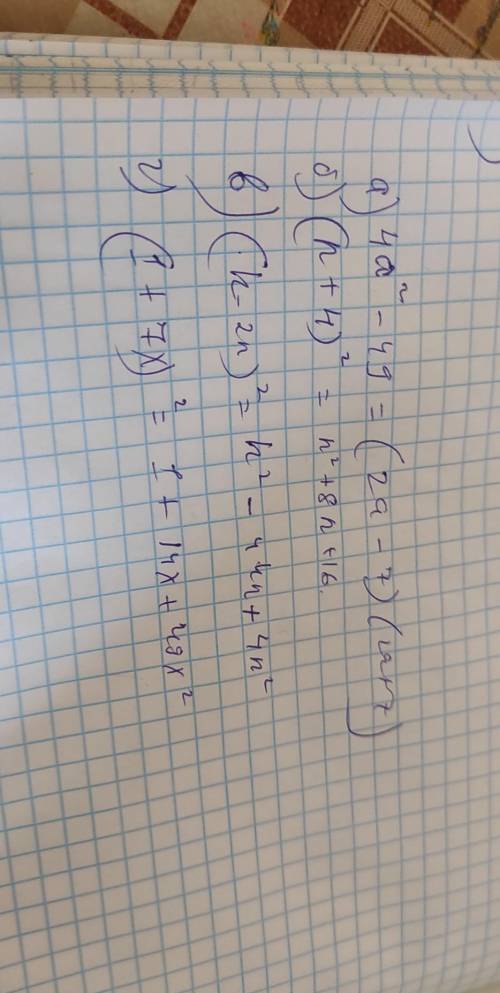 а) 4a² - 49 = (2a - 7)(2a+7)
б) (n + 4)² = n² + 8n + 16.
в) (k - 2n)² = k² - 4kn + 4n²
г) (1 + 7x)² = 1 + 14x + 49x²